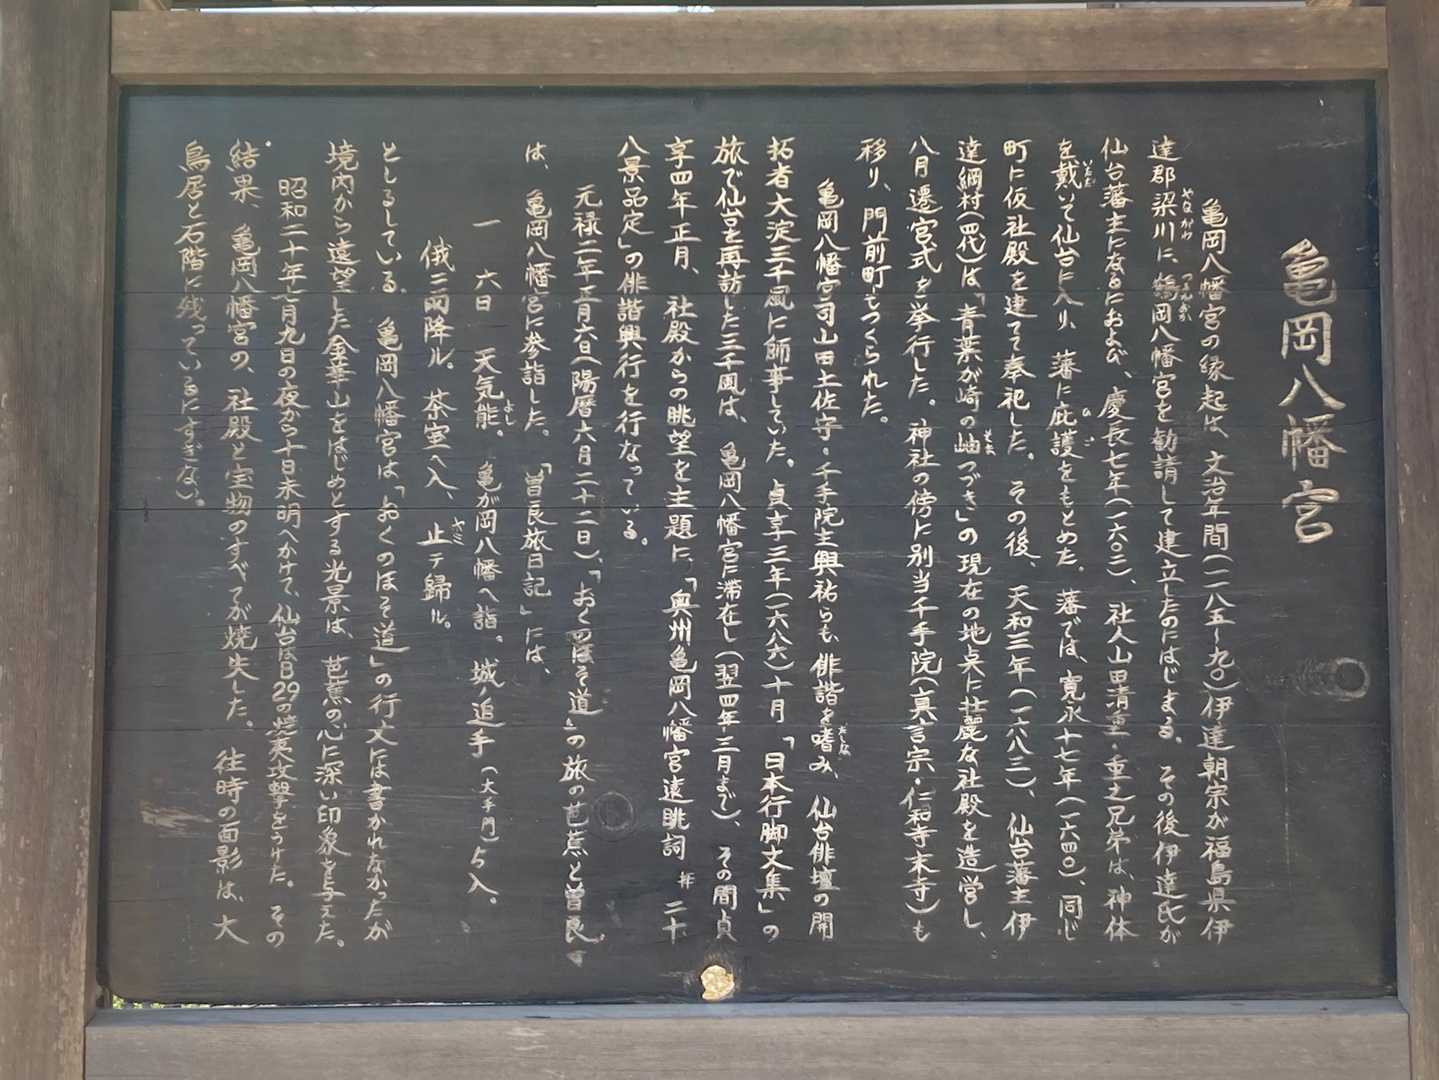 亀岡八幡宮
亀岡八幡宮の縁起は、文治年間(一一八五〜九〇)伊達朝宗が福島県伊
達郡梁川に、鶴岡八幡宮を勧請して建立したのにはじまる。その後伊達氏が
仙台藩主になるにおよび、慶長七年(一六〇二)、社人山田清重・重之兄弟は、神体
を戴いて仙台に入り、藩に庇護をもとめた。藩では、寛永十七年(一六四〇)、同心
町に仮社殿を建てて奉祀した。その後、天和三年(一六八三)、仙台藩主伊
達綱村(四代)は「青葉が崎の岫つづき」の現在の地点に壮麗な社殿を造営し、
八月遷宮式を挙行した。神社の傍に別当千手院(真言宗・仁和寺末寺)も
移り、門前町もつくられた。
亀岡八幡宮司山田土佐守・千手院主興祐らも、俳諧を嗜み、仙台俳壇の開
拓者大淀三千風に師事していた。貞享三年(一六八六)十月「日本行脚文集」の
旅で仙台を再訪した三千風は、亀岡八幡宮に滞在し(翌四年三月まで)、その間貞
享四年正月、社殿からの眺望を主題に、「奥州亀岡八幡宮遠眺詞 并 二十
八景品定」の俳諧興行を行なっている。
元禄二年五月六日(陽暦六月二十二日)、「おくのほそ道」の旅の芭蕉と曽良
は、亀岡八幡宮に参詣した。「曽良旅日記」には、
一 六日 天気能。亀が岡八幡へ詣。城ノ追手(大手門)ゟ入。
俄ニ雨降ル。茶室ヘ入、止テ歸ル。
としるしている。亀岡八幡宮は、「おくのほそ道」の行文には書かれなかったが
境内から遠望した金華山をはじめとする光景は、芭蕉の心に深い印象を与えた。
昭和二十年七月九日の夜から十日未明へかけて、仙台はB29の焼夷攻撃をうけた。その
結果、亀岡八幡宮の、社殿と宝物のすべてが焼失した。往時の面影は、大
鳥居と石階に残っているにすぎない。